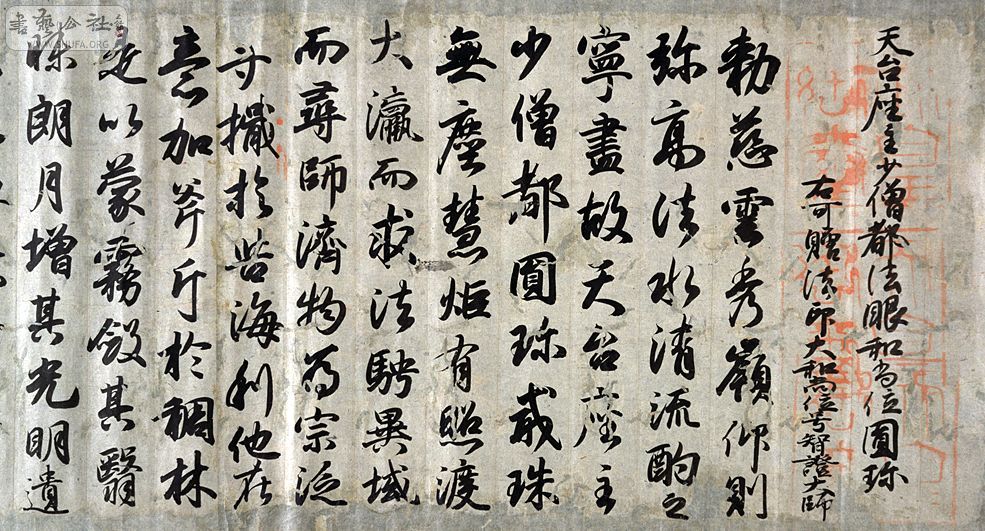 天台座主少僧都法眼和尚位圓珎
右可贈法印大和尚位号智證大師
勅慈雲秀嶺仰則
弥高法水清流酌之
寧盡故天台座主
少僧都圓珎戒珠
無塵慧炬有照渡
大瀛而求法騁異域
而尋師濟物為宗泛
舟檝於苦海利他在
意加斧斤於稠林
遂以蒙霧斂其翳
昧朗月增其光明遺
書藝公社
WWW.SHUFA.ORG